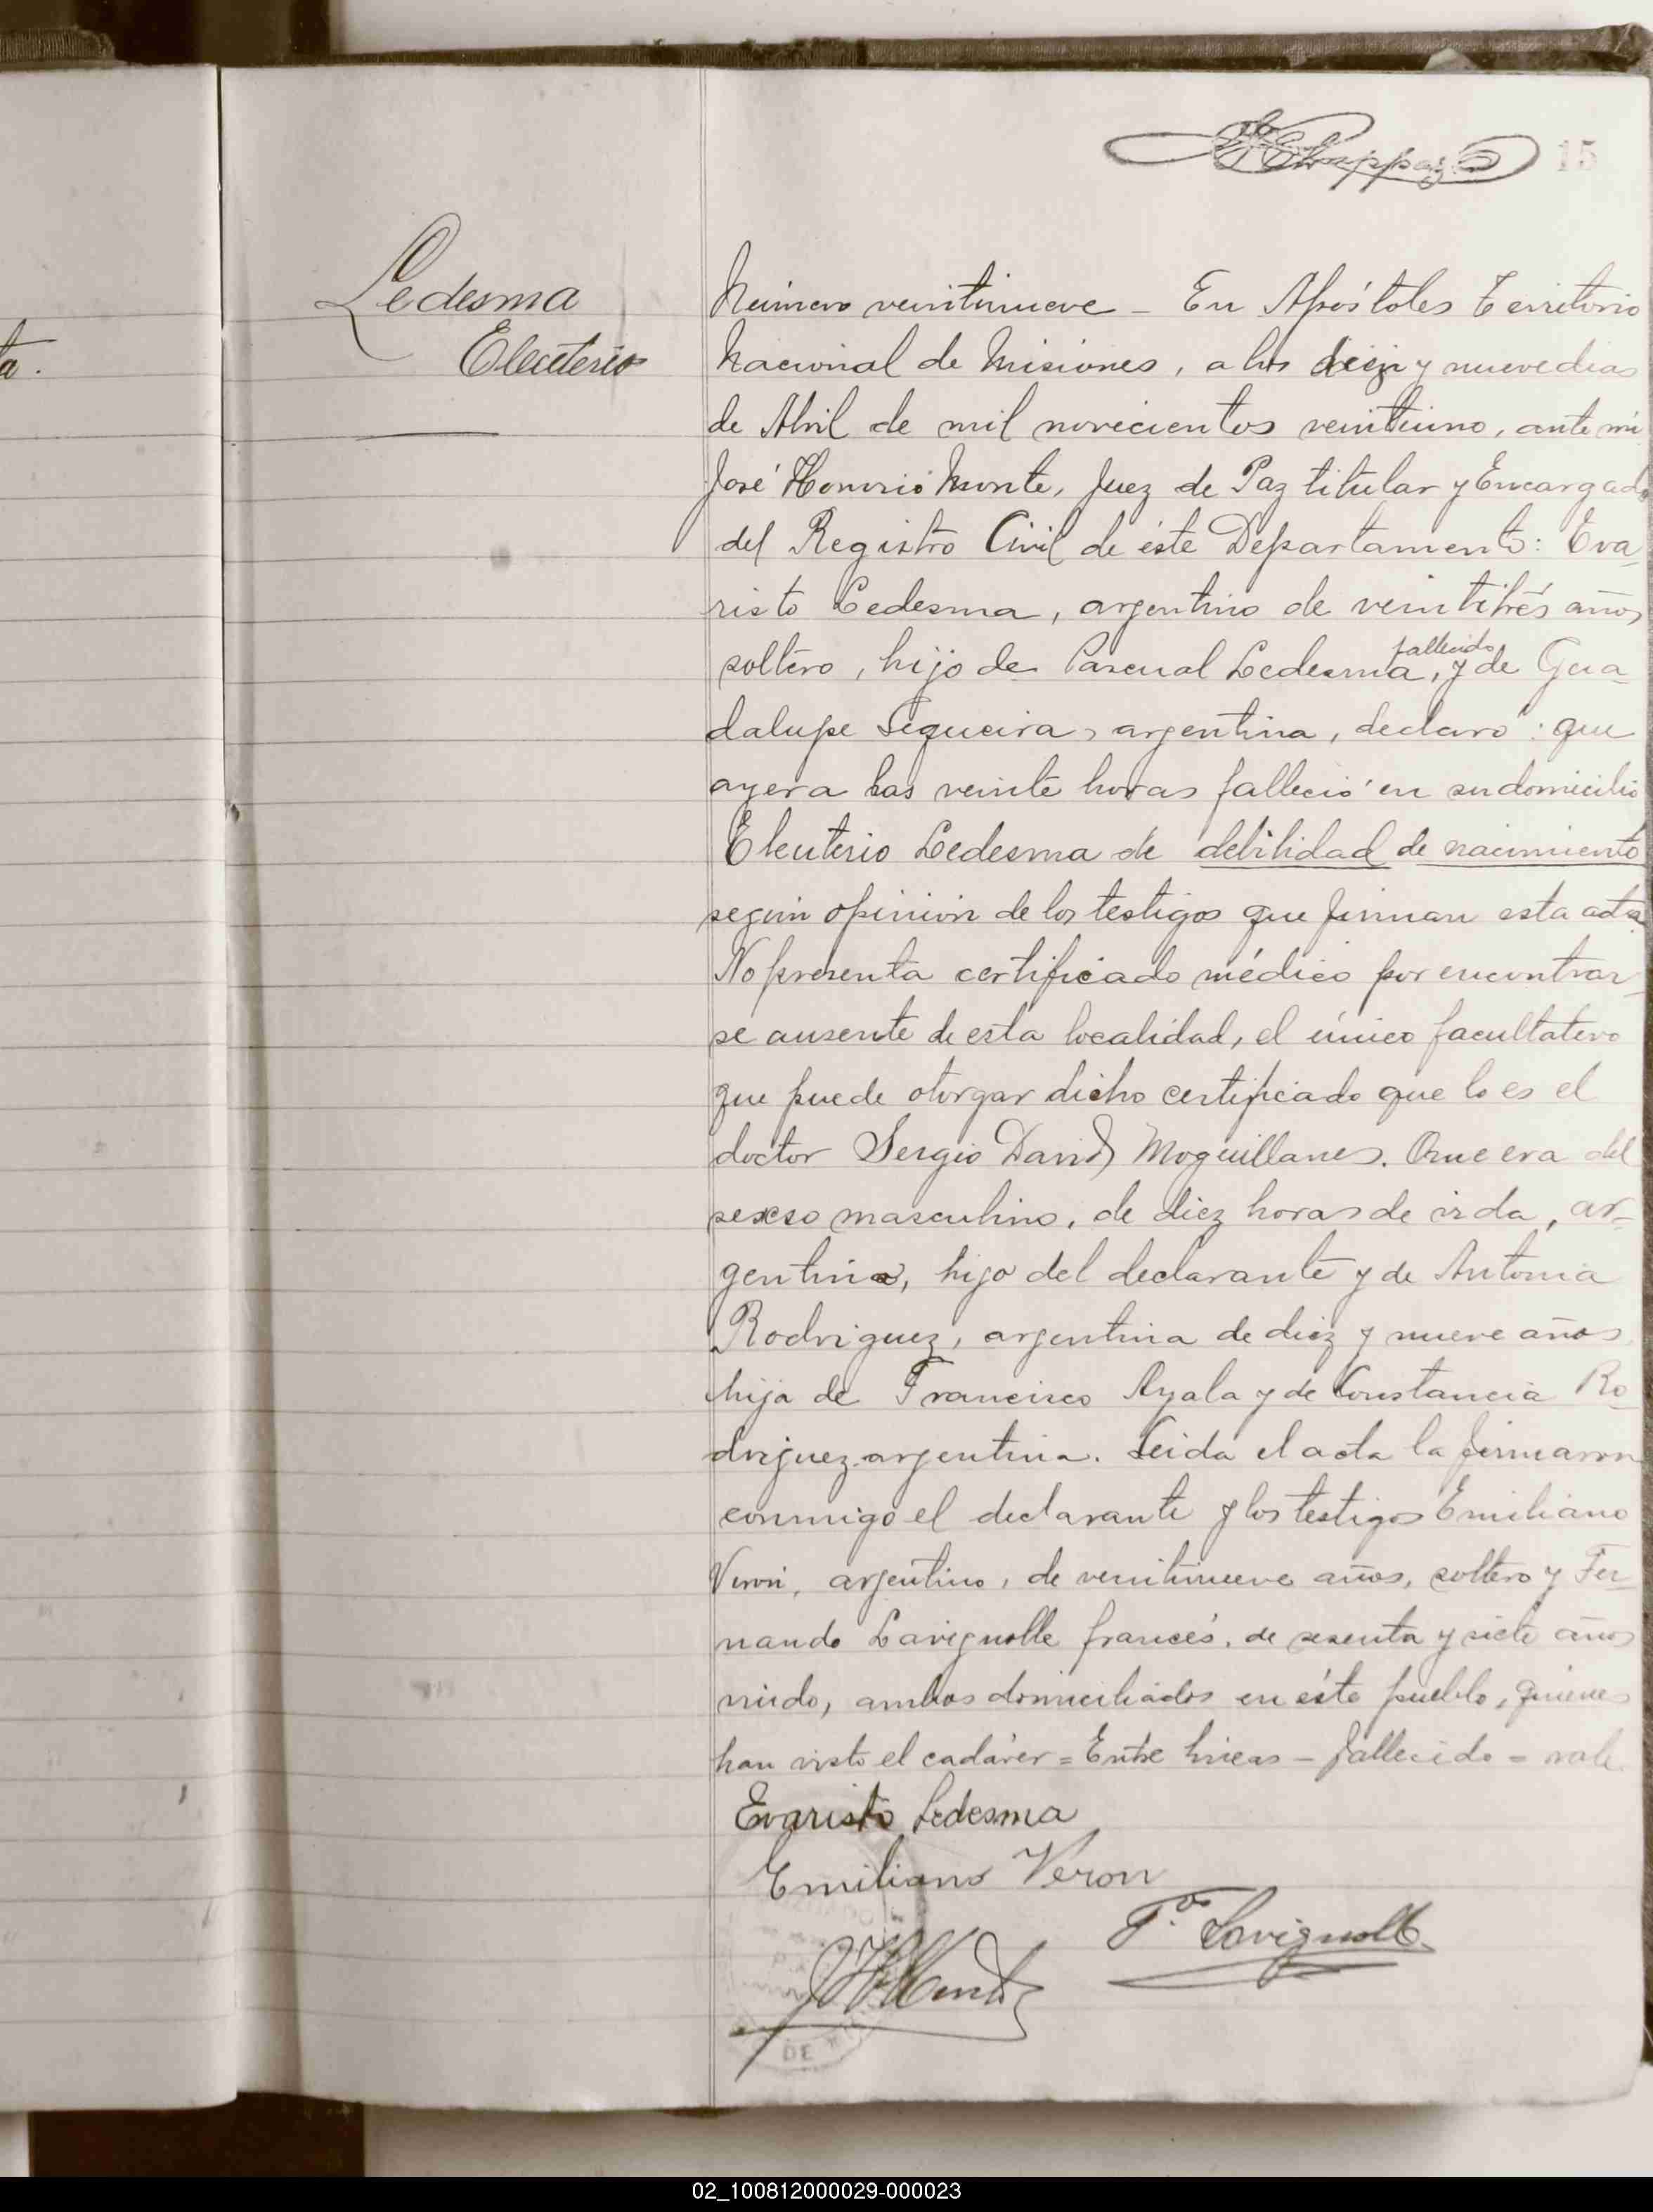 15
Ledesma
Eleuterio
ta.
Número veintinueve - En Apóstoles Territorio
Nacional de Misiones, a los diez y nueve dias
de Abril de mil novecientos veintiuno, ante mi
José Honorio Monte, Juez de Paz titular y Encargado
del Registro Civil de éste Departamento: Eva-
risto Ledesma, argentino de veintitrés años
soltero, hijo de Pascual Ledesma, fallecido y de Gua-
dalupe Sequeira, argentina, declaró: que
ayer a las veinte horas falleció en su domicilio
Eleuterio Ledesma de debilidad de nacimiento
según opinión de los testigos que firman esta acta.
No presenta certificado médico por encontrar-
se ausente de esta localidad, el único facultativo
que puede otorgar dicho certificado que lo es el
doctor Sergio David Moguillanes. Que era del
sexso masculino, de diez horas de vida, ar-
gentino, hijo del declarante y de Antonia
Rodriguez, argentina de diez y nueve años
hija de Francisco Ayala y de Constancia Ro-
driguez argentina. Leida el acta la firmaron
conmigo el declarante y los testigos Emiliano
Veron, argentino, de veintinueve años, soltero y Fer-
nando Lavignolle francés, de sesenta y siete años
viudo, ambos domiciliados en éste pueblo, quienes
han visto el cadáver = Entre lineas - fallecido = vale.
Evaristo Ledesma
Emiliano Veron
F.do Lavignolle
DE
02_100812000029-000023